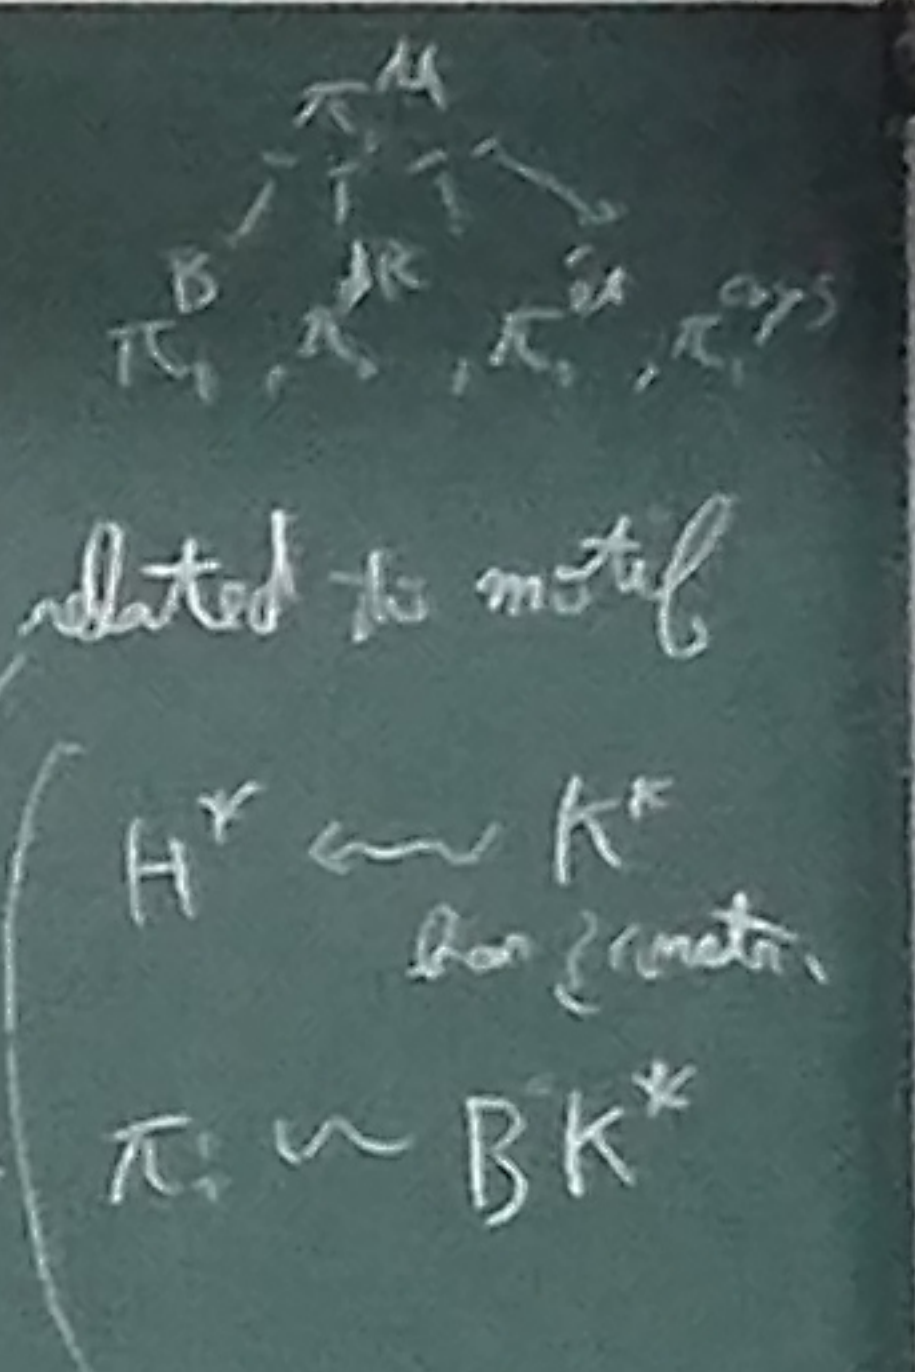 π₁^M
π₁^B , π₁^dR , π₁^ét , π₁^crys
related to motif
H* ← K*
bar constr.
π₁ ~ BK*